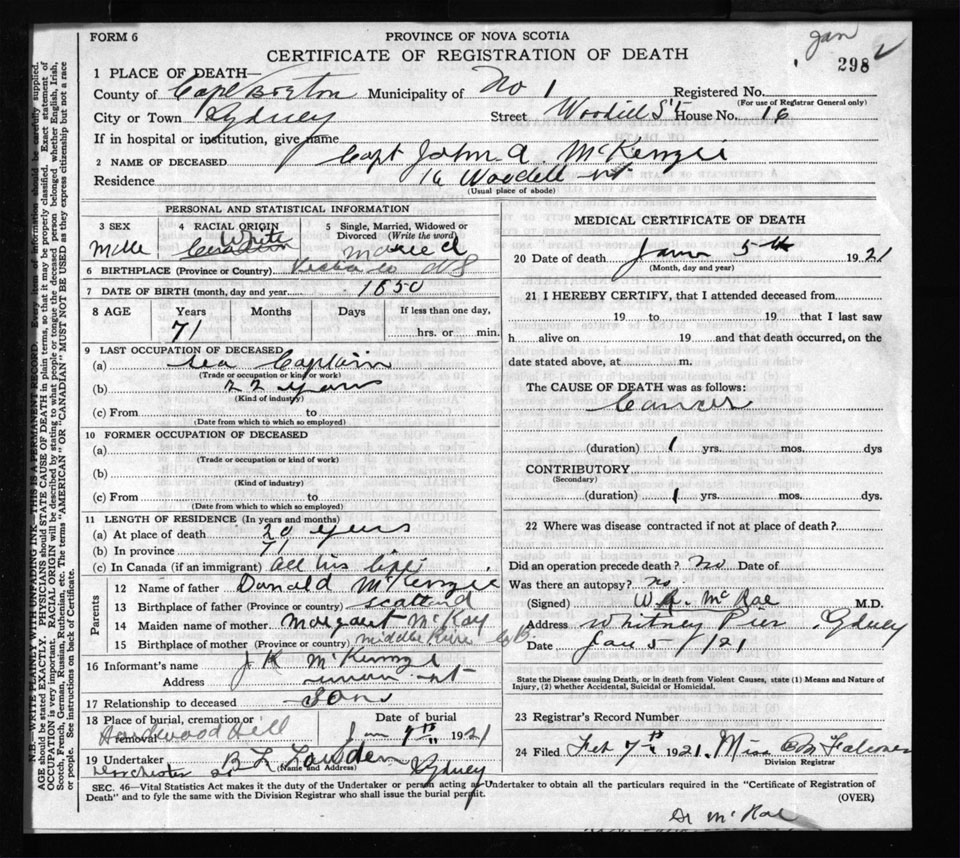 FORM 6
PROVINCE OF NOVA SCOTIA
Jan
298
CERTIFICATE OF REGISTRATION OF DEATH
1 PLACE OF DEATH—
County of Cape Breton Municipality of No 1 Registered No.
(For use of Registrar General only)
City or Town Sydney Street Woodill St House No. 16
If in hospital or institution, give name
2 NAME OF DECEASED Capt John A. McKenzie
Residence 16 Woodill st.
(Usual place of abode)
PERSONAL AND STATISTICAL INFORMATION
3 SEX
Male
4 RACIAL ORIGIN
White
Canadian
5 Single, Married, Widowed or Divorced (Write the word)
Married
6 BIRTHPLACE (Province or Country) NS
7 DATE OF BIRTH (month, day and year) 1850
8 AGE Years Months Days If less than one day,
71 hrs. or min.
9 LAST OCCUPATION OF DECEASED
(a) Sea Captain
(Trade or occupation or kind of work)
(b) 22 years
(Kind of industry)
(c) From to
(Date from which to which so employed)
10 FORMER OCCUPATION OF DECEASED
(a)
(Trade or occupation or kind of work)
(b)
(Kind of industry)
(c) From to
(Date from which to which so employed)
11 LENGTH OF RESIDENCE (In years and months)
(a) At place of death 20 years
(b) In province 71
(c) In Canada (if an immigrant) all his life
Parents
12 Name of father Donald McKenzie
13 Birthplace of father (Province or country) Scotland
14 Maiden name of mother Margaret McKay
15 Birthplace of mother (Province or country) Middle River C.B.
16 Informant's name J K McKenzie
Address st
17 Relationship to deceased Son
18 Place of burial, cremation or removal
Hardwood Hill
Date of burial
Jan 7th 1921
19 Undertaker B L
(Name and Address)
Dorchester St Sydney
MEDICAL CERTIFICATE OF DEATH
20 Date of death 5th 1921
(Month, day and year)
21 I HEREBY CERTIFY, that I attended deceased from
19 to 19 that I last saw
h alive on 19 and that death occurred, on the
date stated above, at m.
The CAUSE OF DEATH was as follows:
Cancer
(duration) 1 yrs. mos. dys
CONTRIBUTORY
(Secondary)
(duration) 1 yrs. mos. dys.
22 Where was disease contracted if not at place of death?
Did an operation precede death? No Date of
Was there an autopsy? no
(Signed) W.R. McRae M.D.
Address Whitney Pier Sydney
Date Jan 5/21
State the Disease causing Death, or in death from Violent Causes, state (1) Means and Nature of
Injury, (2) whether Accidental, Suicidal or Homicidal.
23 Registrar's Record Number
24 Filed Feb 7th 1921. Miss
Division Registrar
SEC. 46—Vital Statistics Act makes it the duty of the Undertaker or person acting as Undertaker to obtain all the particulars required in the "Certificate of Registration of
Death" and to fyle the same with the Division Registrar who shall issue the burial permit.
(OVER)
Dr McRae